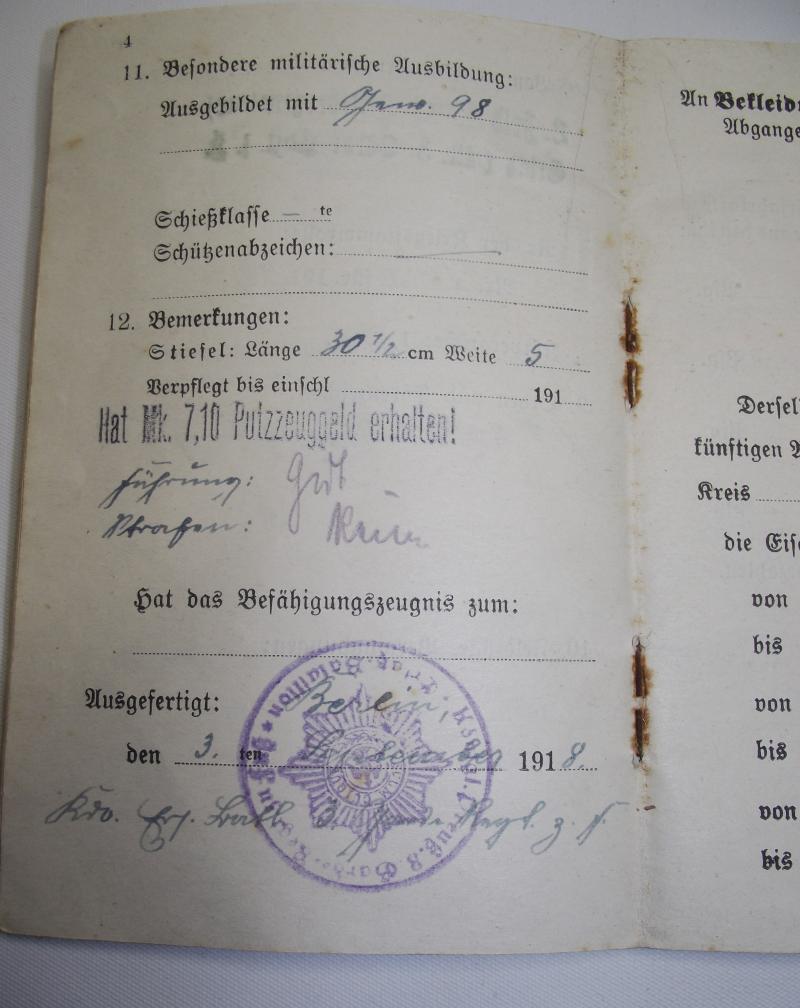 4
11. Besondere militärische Ausbildung:
Ausgebildet mit Gew. 98
Schießklasse — te
Schützenabzeichen: —
12. Bemerkungen:
Stiefel: Länge 30 1/2 cm Weite 5
Verpflegt bis einschl 191
Hat Mk. 7,10 Putzzeuggeld erhalten!
Führung: Gut
Strafen: Keine
Hat das Befähigungszeugnis zum:
Ausgefertigt: Berlin,
den 3. ten September 1918.
Kdo. Ers. Batl. 3. Garde Regt. z. F.
Königl. Preuß. 3. Garde-Reg. zu Fuß ★ Ersatz-Bataillon
An Bekleidu
Abgange
Dersel
künftigen A
Kreis
die Eise
von
bis
von
bis
von
bis